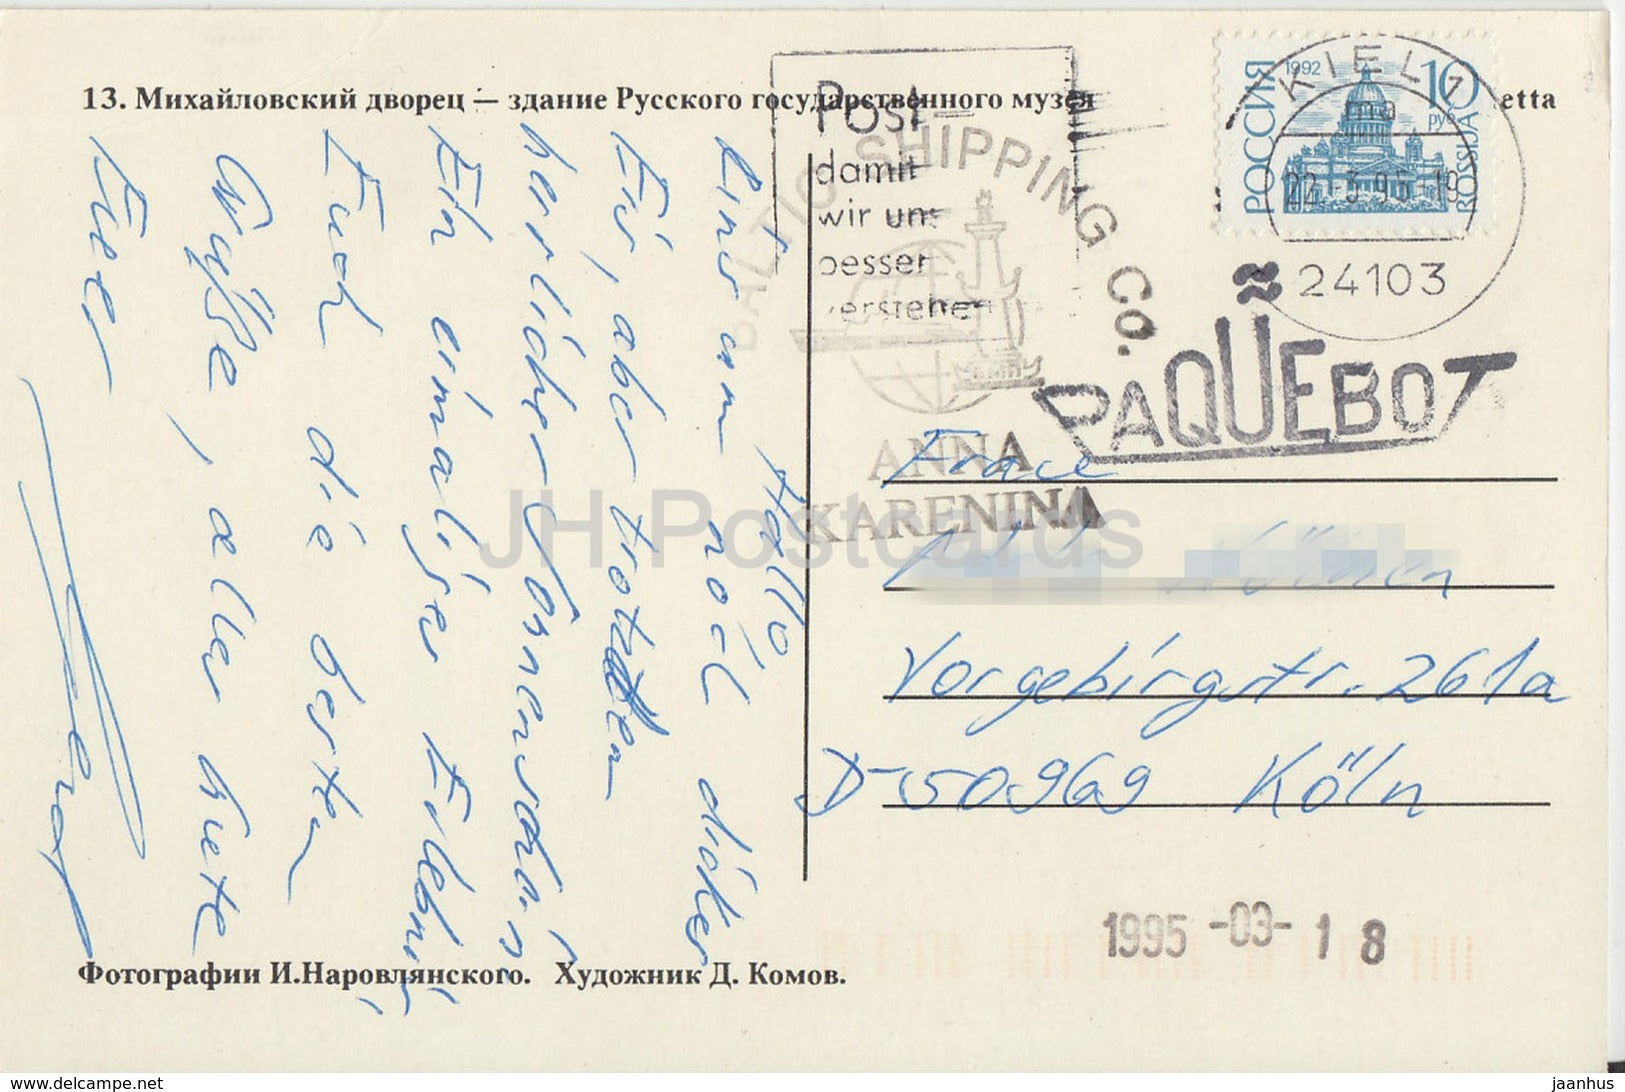 13. Михайловский дворец — здание Русского государственного музея
etta
Post-
damit
wir uns
besser
verstehen
BALTIC SHIPPING CO.
ANNA
KARENINA
РОССИЯ
1992
10
руб
ROSSIJA
KIEL 1
ma
22.-3.95-18
24103
PAQUEBOT
Hallo,
rins um noch dickes
Eis, aber trotzdem
herrlicher Sonnenschein
Ein einmaliges Erlebnis
Euch die besten
Grüße, alles gute
Euer
Gerd
Vorgebirgstr. 261a
D-50969 Köln
1995-03-18
Фотографии И.Наровлянского. Художник Д. Комов.
JH Postcards
www.delcampe.net
jaanhus